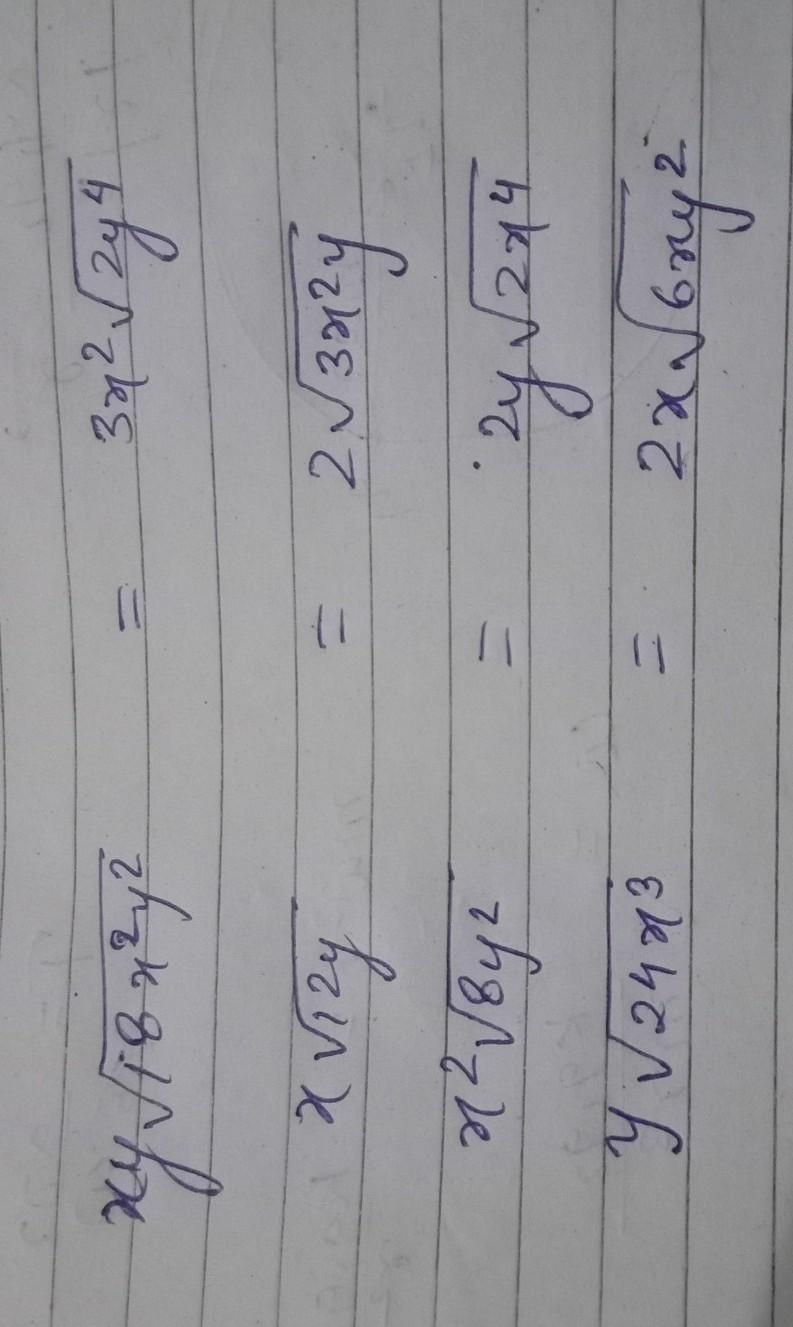 xy√18x²y² = 3x²√2y⁴
x√12y = 2√3x²y
x²√8y² = 2y√2x⁴
y√24x³ = 2x√6xy²